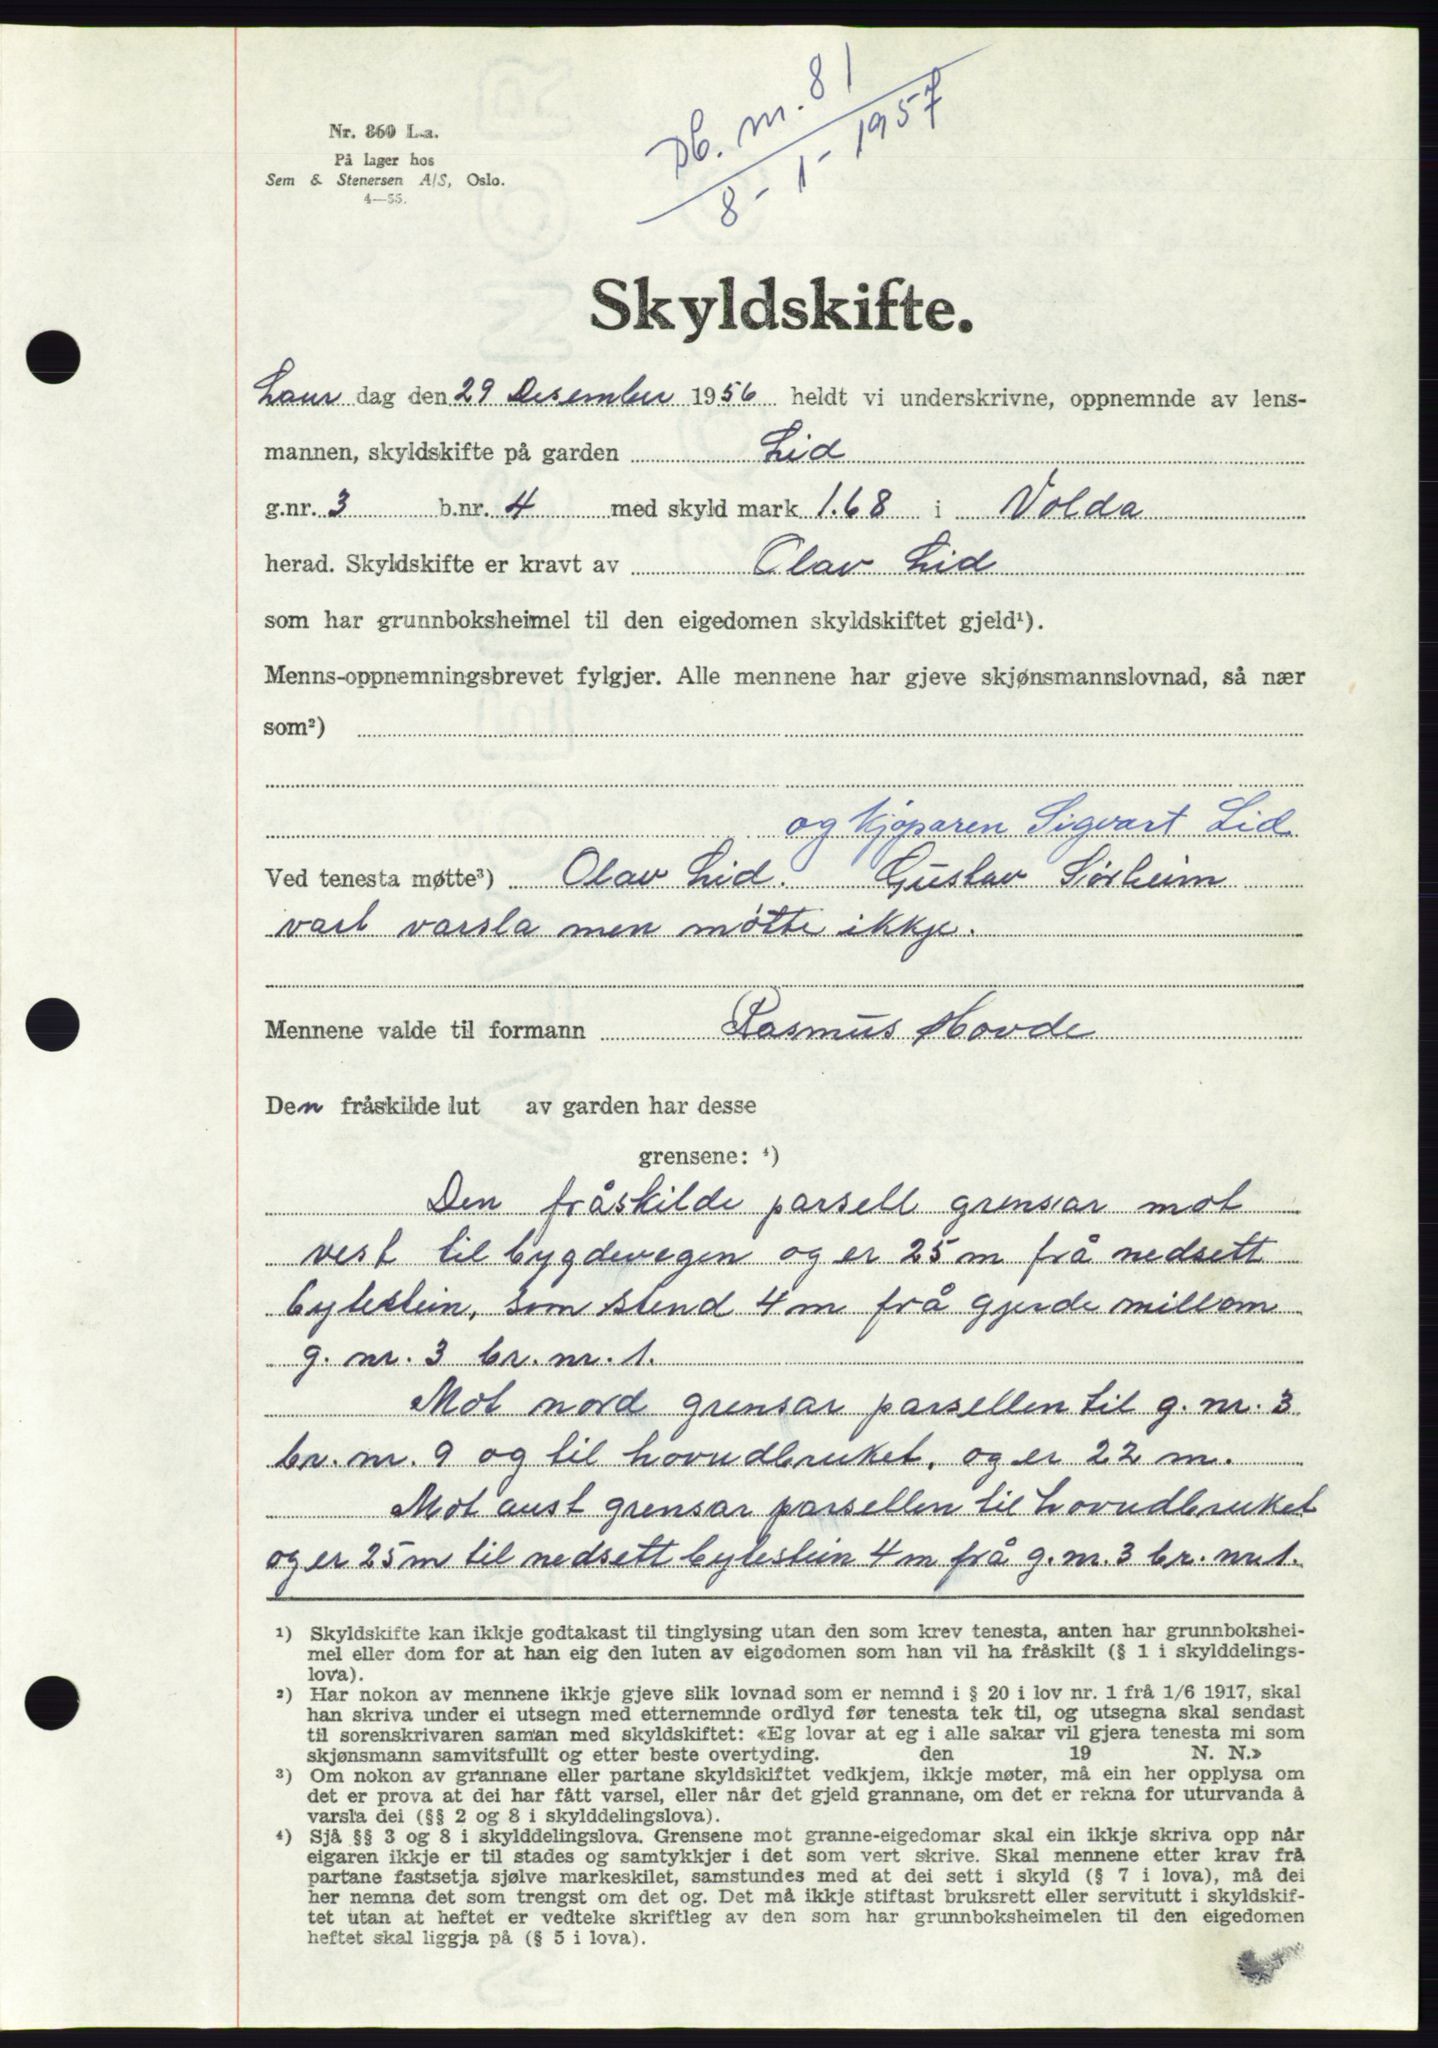 Db. nr. 81
8-1-1957
Nr. 860 L.a.
På lager hos
Sem & Stenersen A/S, Oslo.
4—55.
Skyldskifte.
Laur dag den 29 Desember 1956 heldt vi underskrivne, oppnemnde av lens-
mannen, skyldskifte på garden Lid
g.nr. 3 b.nr. 4 med skyld mark 1.68 i Volda
herad. Skyldskifte er kravt av Olav Lid
som har grunnboksheimel til den eigedomen skyldskiftet gjeld¹).
Menns-oppnemningsbrevet fylgjer. Alle mennene har gjeve skjønsmannslovnad, så nær
som²)
og kjøparen Sigvart Lid.
Ved tenesta møtte³) Olav Lid. Gustav Sørheim
vart varsla men møtte ikkje.
Mennene valde til formann Rasmus Hovde
Den fråskilde lut av garden har desse
grensene: ⁴)
Den fråskilde parsell grensar mot
vest til bygdevegen og er 25 m frå nedsett
bytestein, som stend 4 m frå gjerde millom
g. nr. 3 br. nr. 1.
Mot nord grensar parsellen til g. nr. 3
br. nr. 9 og til hovudbruket, og er 22 m.
Mot aust grensar parsellen til hovudbruket
og er 25 m til nedsett bytestein 4 m frå g. nr. 3 br. nr. 1.
¹) Skyldskifte kan ikkje godtakast til tinglysing utan den som krev tenesta, anten har grunnbokshei-
mel eller dom for at han eig den luten av eigedomen som han vil ha fråskilt (§ 1 i skylddelings-
lova).
²) Har nokon av mennene ikkje gjeve slik lovnad som er nemnd i § 20 i lov nr. 1 frå 1/6 1917, skal
han skriva under ei utsegn med etternemnde ordlyd før tenesta tek til, og utsegna skal sendast
til sorenskrivaren saman med skyldskiftet: «Eg lovar at eg i alle sakar vil gjera tenesta mi som
skjønsmann samvitsfullt og etter beste overtyding. den 19 N. N.»
³) Om nokon av grannane eller partane skyldskiftet vedkjem, ikkje møter, må ein her opplysa om
det er prova at dei har fått varsel, eller når det gjeld grannane, om det er rekna for uturvanda å
varsla dei (§§ 2 og 8 i skylddelingslova).
⁴) Sjå §§ 3 og 8 i skylddelingslova. Grensene mot granne-eigedomar skal ein ikkje skriva opp når
eigaren ikkje er til stades og samtykkjer i det som vert skrive. Skal mennene etter krav frå
partane fastsetja sjølve markeskilet, samstundes med at dei sett i skyld (§ 7 i lova), må dei
her nemna det som trengst om det og. Det må ikkje stiftast bruksrett eller servitutt i skyldskif-
tet utan at heftet er vedteke skriftleg av den som har grunnboksheimelen til den eigedomen
heftet skal liggja på (§ 5 i lova).